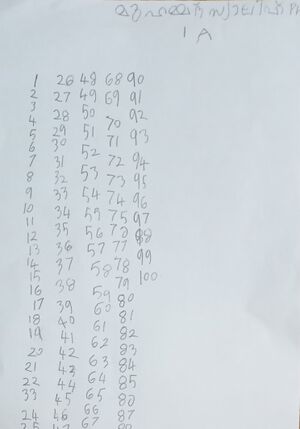 മുഹമ്മദ്
1 A
1
2
3
4
5
6
7
8
9
10
11
12
13
14
15
16
17
18
19
20
21
22
33
24
26
27
28
29
30
31
32
33
34
35
36
37
38
39
40
41
42
43
44
45
46
48
49
50
51
52
53
54
59
56
57
58
59
60
61
62
63
64
65
66
67
68
69
70
71
72
73
74
75
77
78
79
80
81
82
83
84
85
87
90
91
92
93
94
95
96
97
98
99
100